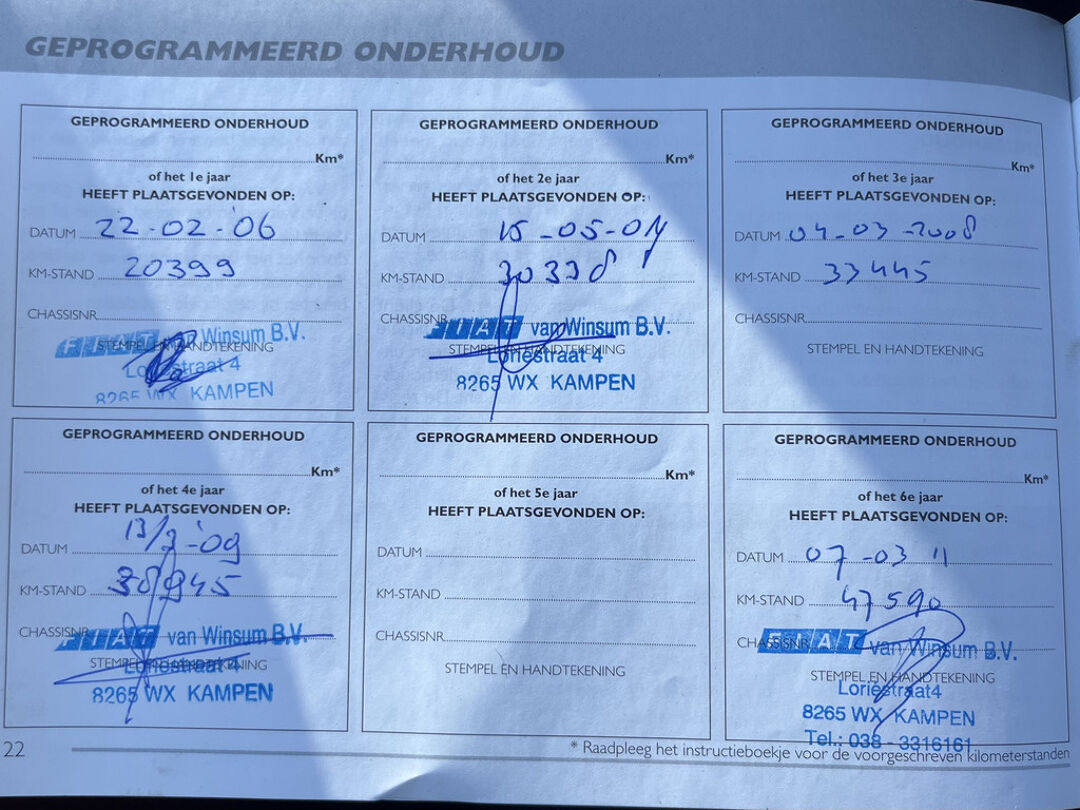 GEPROGRAMMEERD ONDERHOUD
GEPROGRAMMEERD ONDERHOUD
Km*
of het 1e jaar
HEEFT PLAATSGEVONDEN OP:
DATUM 22-02-'06
KM-STAND 20399
CHASSISNR.
FIAT van Winsum B.V.
STEMPEL EN HANDTEKENING
Loriestraat 4
8265 WX KAMPEN
GEPROGRAMMEERD ONDERHOUD
Km*
of het 2e jaar
HEEFT PLAATSGEVONDEN OP:
DATUM 15-05-07
KM-STAND 30338
CHASSISNR.
FIAT van Winsum B.V.
STEMPEL EN HANDTEKENING
Loriestraat 4
8265 WX KAMPEN
GEPROGRAMMEERD ONDERHOUD
Km*
of het 3e jaar
HEEFT PLAATSGEVONDEN OP:
DATUM 04-03-2008
KM-STAND 33445
CHASSISNR.
STEMPEL EN HANDTEKENING
GEPROGRAMMEERD ONDERHOUD
Km*
of het 4e jaar
HEEFT PLAATSGEVONDEN OP:
DATUM 13/3-'09
KM-STAND 38945
CHASSISNR.
FIAT van Winsum B.V.
STEMPEL EN HANDTEKENING
Loriestraat 4
8265 WX KAMPEN
GEPROGRAMMEERD ONDERHOUD
Km*
of het 5e jaar
HEEFT PLAATSGEVONDEN OP:
DATUM
KM-STAND
CHASSISNR.
STEMPEL EN HANDTEKENING
GEPROGRAMMEERD ONDERHOUD
Km*
of het 6e jaar
HEEFT PLAATSGEVONDEN OP:
DATUM 07-03 11
KM-STAND 47590
CHASSISNR.
FIAT van Winsum B.V.
STEMPEL EN HANDTEKENING
Loriestraat4
8265 WX KAMPEN
Tel.: 038 - 3316161
22
* Raadpleeg het instructieboekje voor de voorgeschreven kilometerstanden